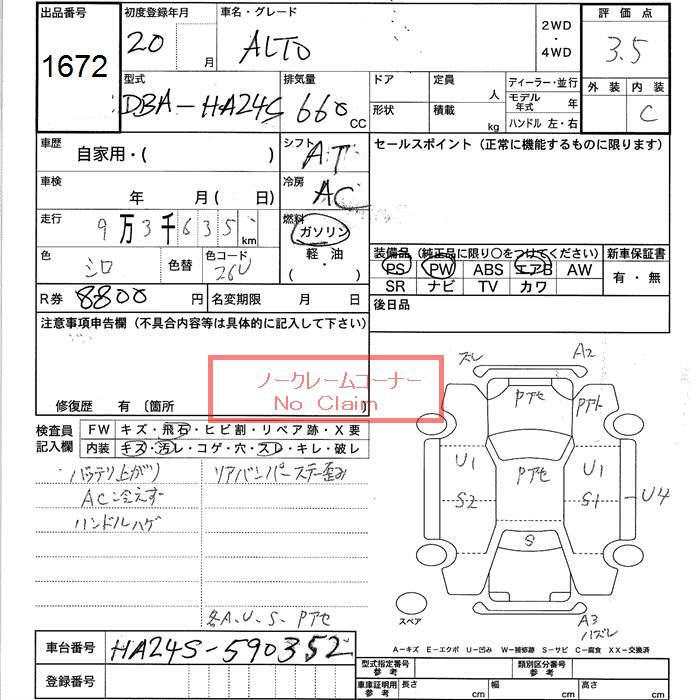 出品番号 初度登録年月 車名・グレード 2WD・4WD 評価点
1672 20 月 ALTO 3.5
型式 排気量 ドア 定員 人 ディーラー・並行 外装 内装
DBA-HA24S 660 CC 形状 積載 kg モデル年式 年 C
ハンドル 左・右
車歴 自家用・( ) シフト AT セールスポイント (正常に機能するものに限ります)
車検 年 月( 日) 冷房 AC
走行 9万3千635 km 燃料 ガソリン
軽・油
( ・ )
色 シロ 色替 色コード 26U
装備品 (純正品に限り〇をつけてください) 新車保証書
PS PW ABS エアB AW 有・無
SR ナビ TV カワ
R券 8800 円 名変期限 月 日 後日品
注意事項申告欄 (不具合内容等は具体的に記入して下さい)
ノークレームコーナー
No Claim
修復歴 有 〔箇所
検査員記入欄 FW キズ・飛石・ヒビ割・リペア跡・X要
内装 キズ・汚レ・コゲ・穴・スレ・キレ・破レ
バッテリ上がり リアバンパーステー歪み
AC冷えず
ハンドルハゲ
各A.U.S.Pアセ
ズレ A2
Pアセ Pアト
U1 Pアセ U1
S2 S1 U4
S
スペア
A3
ハズレ
A-キズ E-エクボ U-凹み W-補修跡 S-サビ C-腐食 XX-交換済
車台番号 HA24S-590352
登録番号
型式指定番号 参考 類別区分番号 参考
車庫証明用 参考 長さ cm 幅 cm 高さ cm